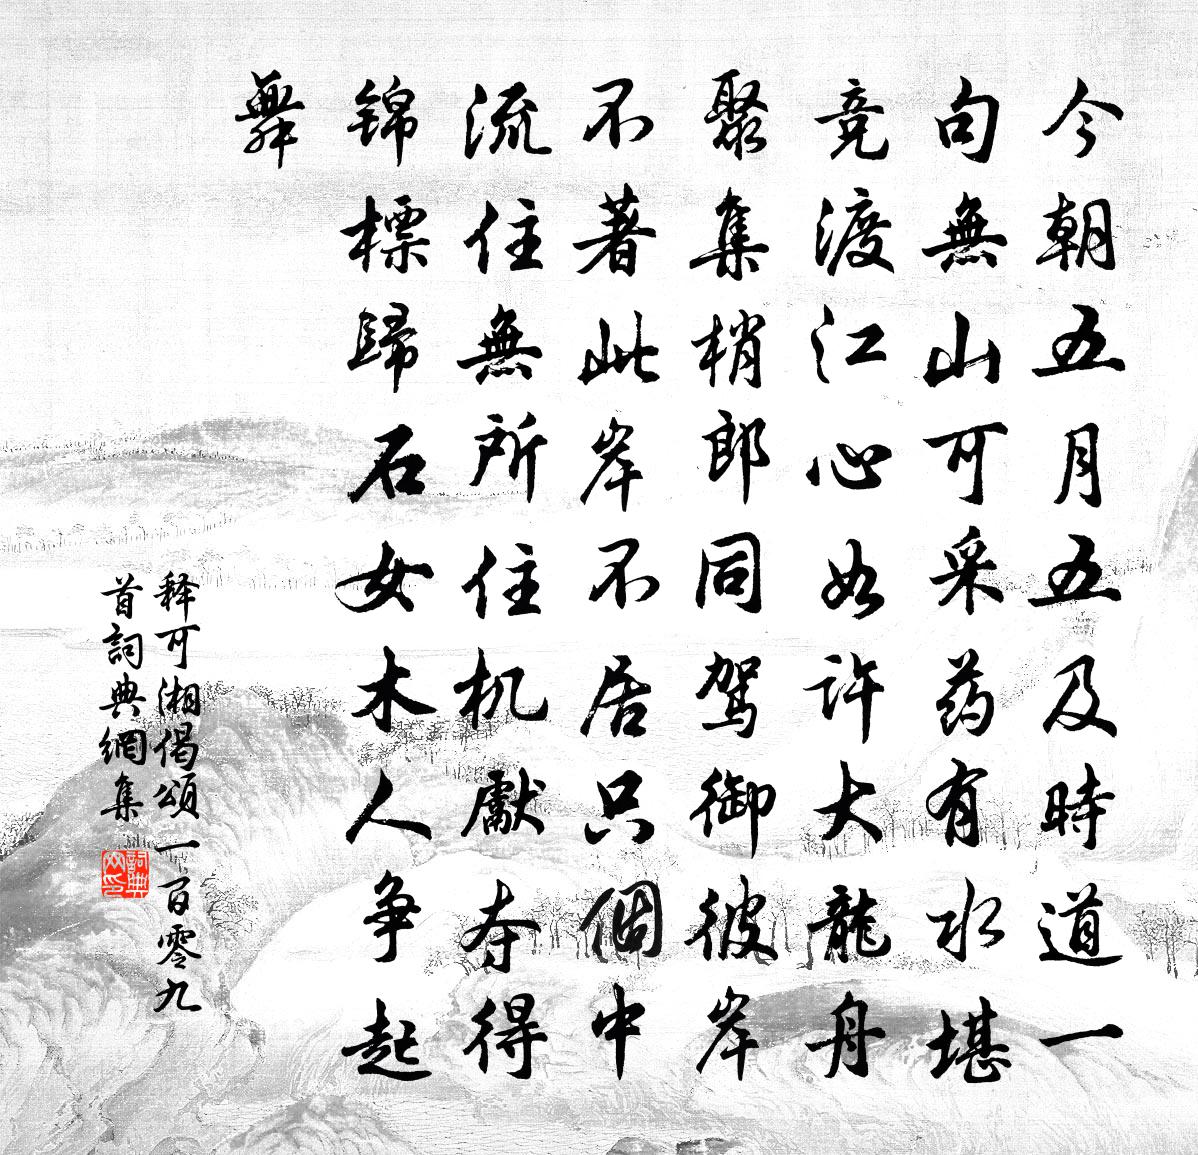 今朝五月五及時道一
句無山可采药有水堪
竞渡江心如許大龍舟
聚集梢郎同駕御彼岸
不著此岸不居只個中
流住無所住机獻夺得
锦標歸石女木人争起
舞
释可湘偈頌一百零九
首詞典網集
詞典
网印